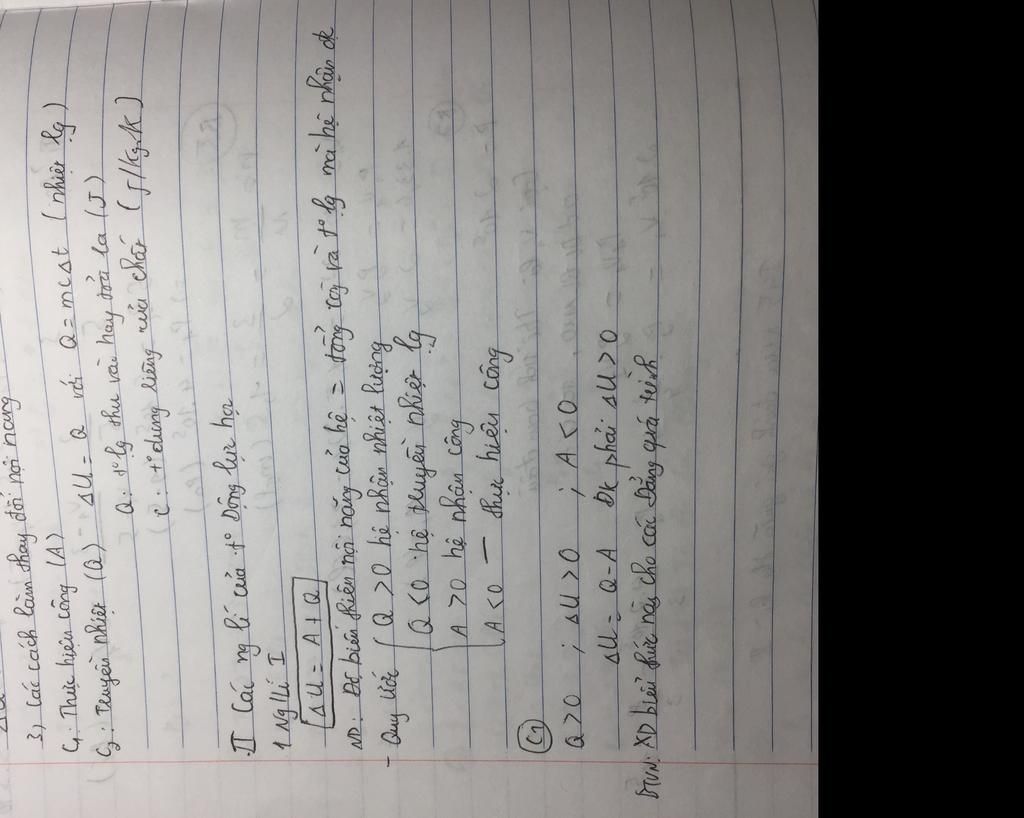 3) Các cách làm thay đổi nội năng
C₁: Thực hiện công (A)
C₂: Truyền nhiệt (Q) ΔU = Q với Q = mcΔt (nhiệt lg)
Q: t° lg thu vào hay tỏa ra (J)
C: t° dung riêng của chất (J/kg.K)
II Các ng lí của t° Động lực học
1 Ng lí I
ΔU = A + Q
ND: Độ biến thiên nội năng của hệ = tổng công và t° lg mà hệ nhận đc
- Quy ước { Q > 0 hệ nhận nhiệt lượng
Q < 0 hệ truyền nhiệt lg
{ A > 0 hệ nhận công
A < 0 — thực hiện công
C1
Q > 0 ; ΔU > 0 ; A < 0
ΔU = Q - A Đk phải ΔU > 0
BTVN: XD biểu thức này cho các Đẳng quá trình